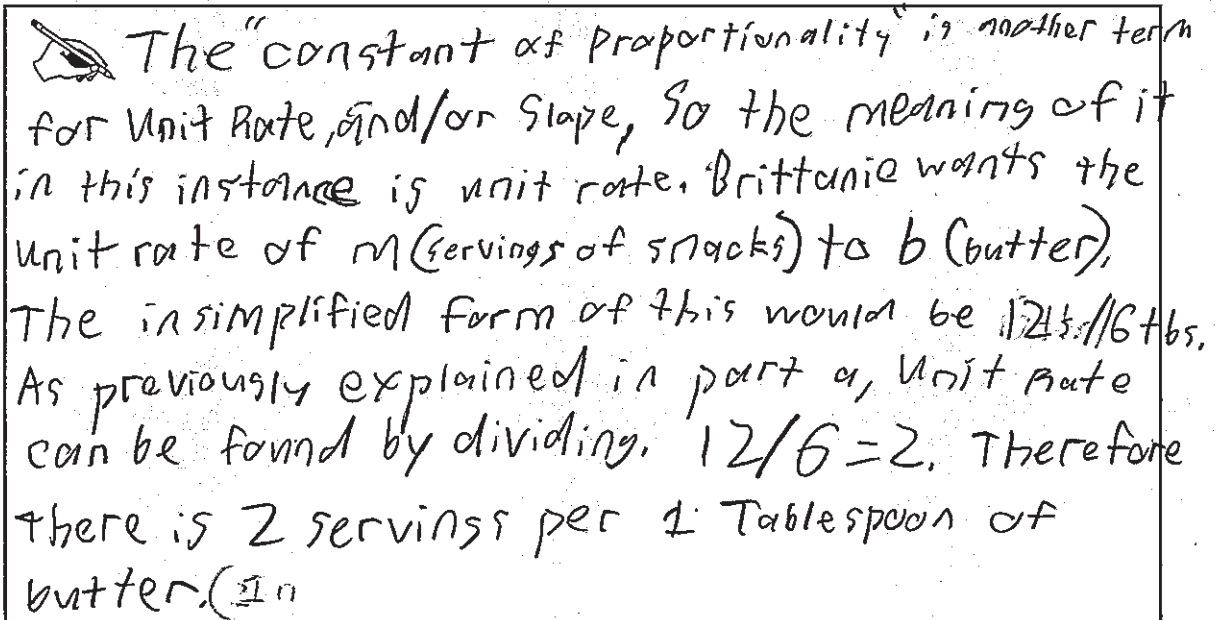 The "constant of proportionality" is another term
for Unit Rate, and/or Slope, So the meaning of it
in this instance is unit rate. Brittanie wants the
unit rate of m (servings of snacks) to b (butter).
The insimplified form of this would be 12s./6tbs.
As previously explained in part a, Unit Rate
can be found by dividing. 12/6=2. Therefore
there is 2 servings per 1 Tablespoon of
butter.(In